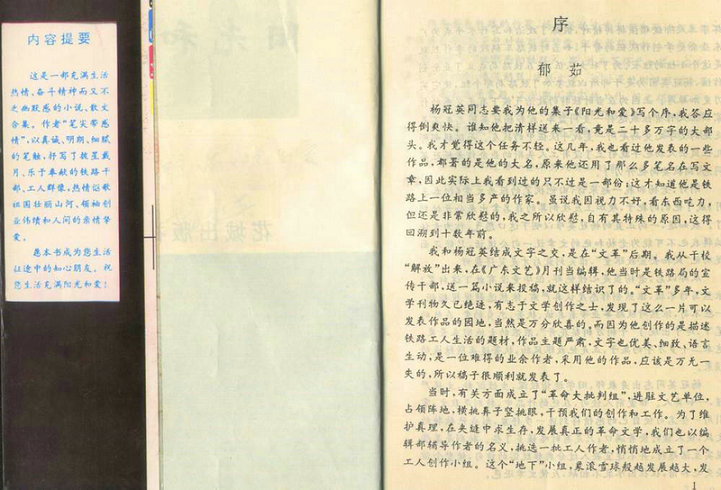 内容提要
这是一部充满生活
热情、奋斗精神而又不
乏幽默感的小说、散文
合集。作者“笔尖带感
情”，以真诚、明朗、细腻
的笔触，抒写了披星戴
月、乐于奉献的铁路干
部、工人群像，热情讴歌
祖国壮丽山河、领袖创
业伟绩和人间的亲情挚
爱。
愿本书成为您生活
征途中的知心朋友。祝
您生活充满阳光和爱！
序
郁茹
杨冠英同志要我为他的集子《阳光和爱》写个序，我答应
得倒爽快。谁知他把清样送来一看，竟是二十多万字的大部
头。我才觉得这个任务不轻。这几年，我也看过他发表的一些
作品，都署的是他的大名，原来他还用了那么多笔名在写文
章，因此实际上我看到过的只不过是一部份；这才知道他是铁
路上一位相当多产的作家。虽说我因视力不好，看东西吃力，
但还是非常欣慰的，我之所以欣慰，自有其特殊的原因，这得
回溯到十数年前。
我和杨冠英结成文字之交，是在“文革”后期。我从干校
“解放”出来，在《广东文艺》月刊当编辑，他当时是铁路局的宣
传干部，送一篇小说来投稿，就这样结识了的。“文革”多年，文
学刊物久已绝迹，有志于文学创作之士，发现了这么一片可以
发表作品的园地，当然是万分欣喜的。而因为他创作的是描述
铁路工人生活的题材，作品主题严肃，文字也优美、细致，语言
生动，是一位难得的业余作者，采用他的作品，应该是万无一
失的，所以稿子很顺利就发表了。
当时，有关方面成立了“革命大批判组”，进驻文艺单位，
占领阵地，横挑鼻子竖挑眼，干预我们的创作和工作。为了维
护真理，在夹缝中求生存，发展真正的革命文学，我们也以编
辑部辅导作者的名义，挑选一批工人作者，悄悄地成立了一个
工人创作小组。这个“地下”小组，象滚雪球般越发展越大，发
1